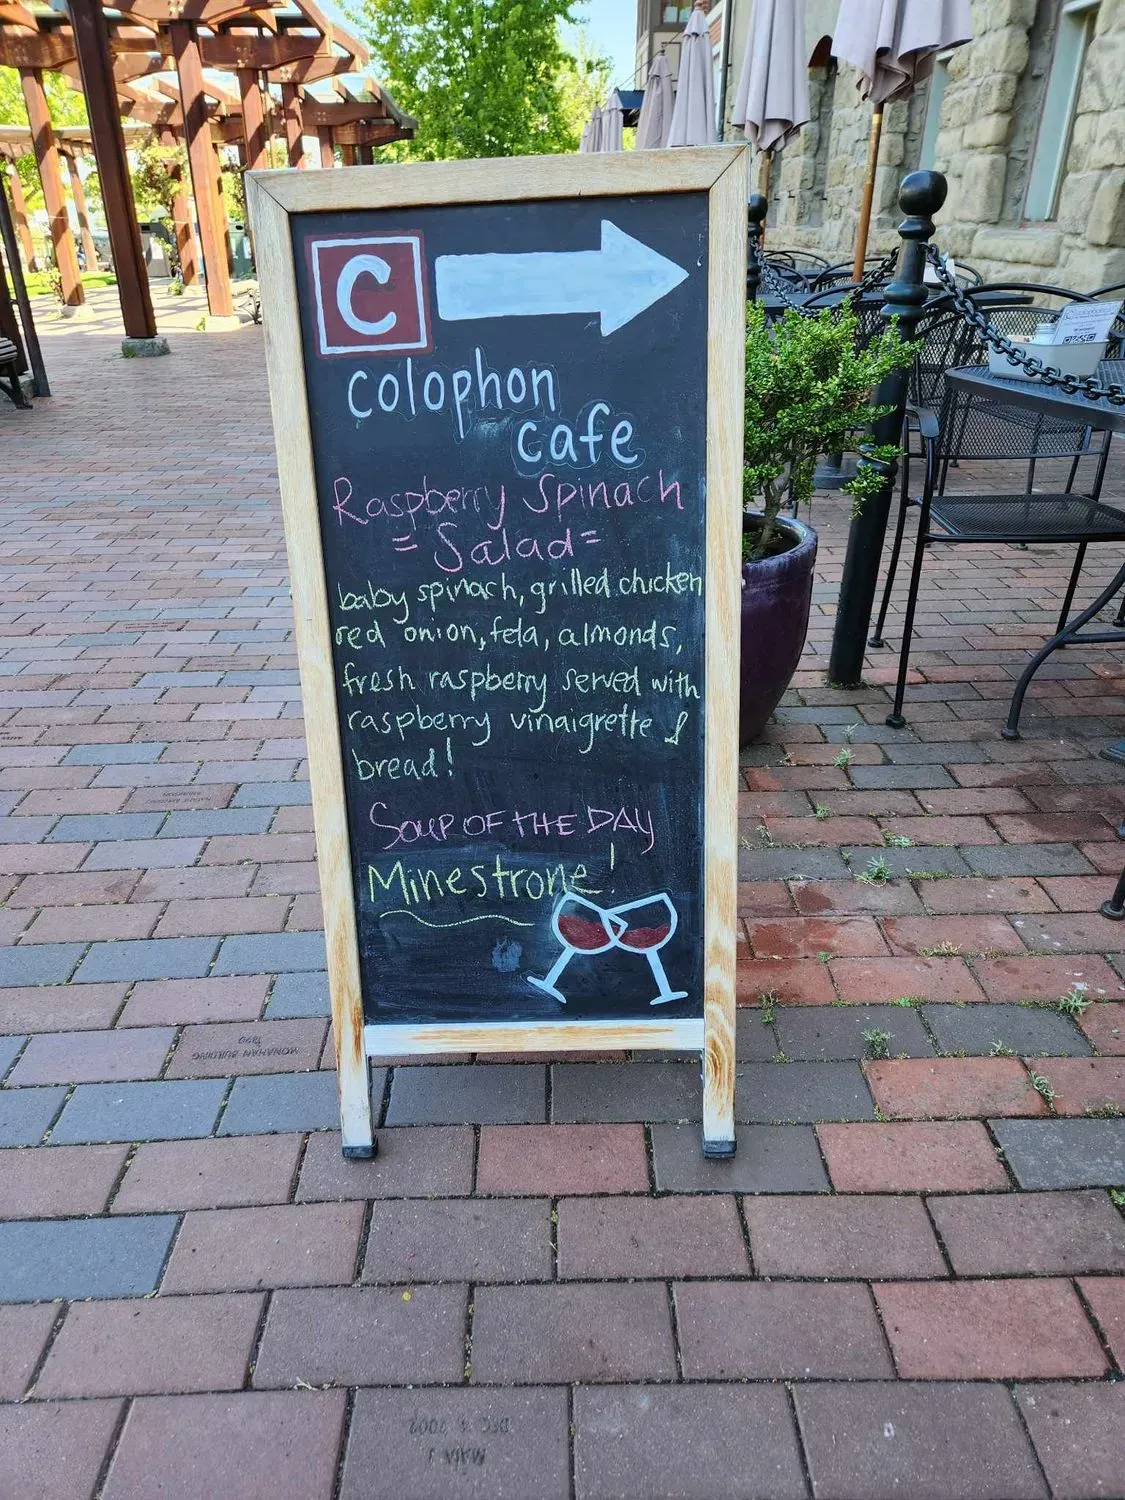 C
colophon
cafe
Raspberry Spinach
= Salad =
baby spinach, grilled chicken
red onion, feta, almonds,
fresh raspberry served with
raspberry vinaigrette &
bread!
SOUP OF THE DAY
Minestrone!
MONAHAN BUILDING
1890
DEC 4 2002